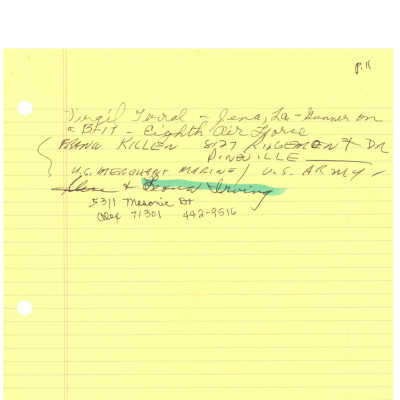 p. 11
Virgil Terral - Jena, La - Gunner on
a B-17 - Eighth Air Force
FRANK KILLEN 5127 RIDGEMONT DR
PINEVILLE
U.S. MERCHANT MARINE / U.S. ARMY -
& Leona Irving
5311 Masonic Dr
Alex 71301 442-9516